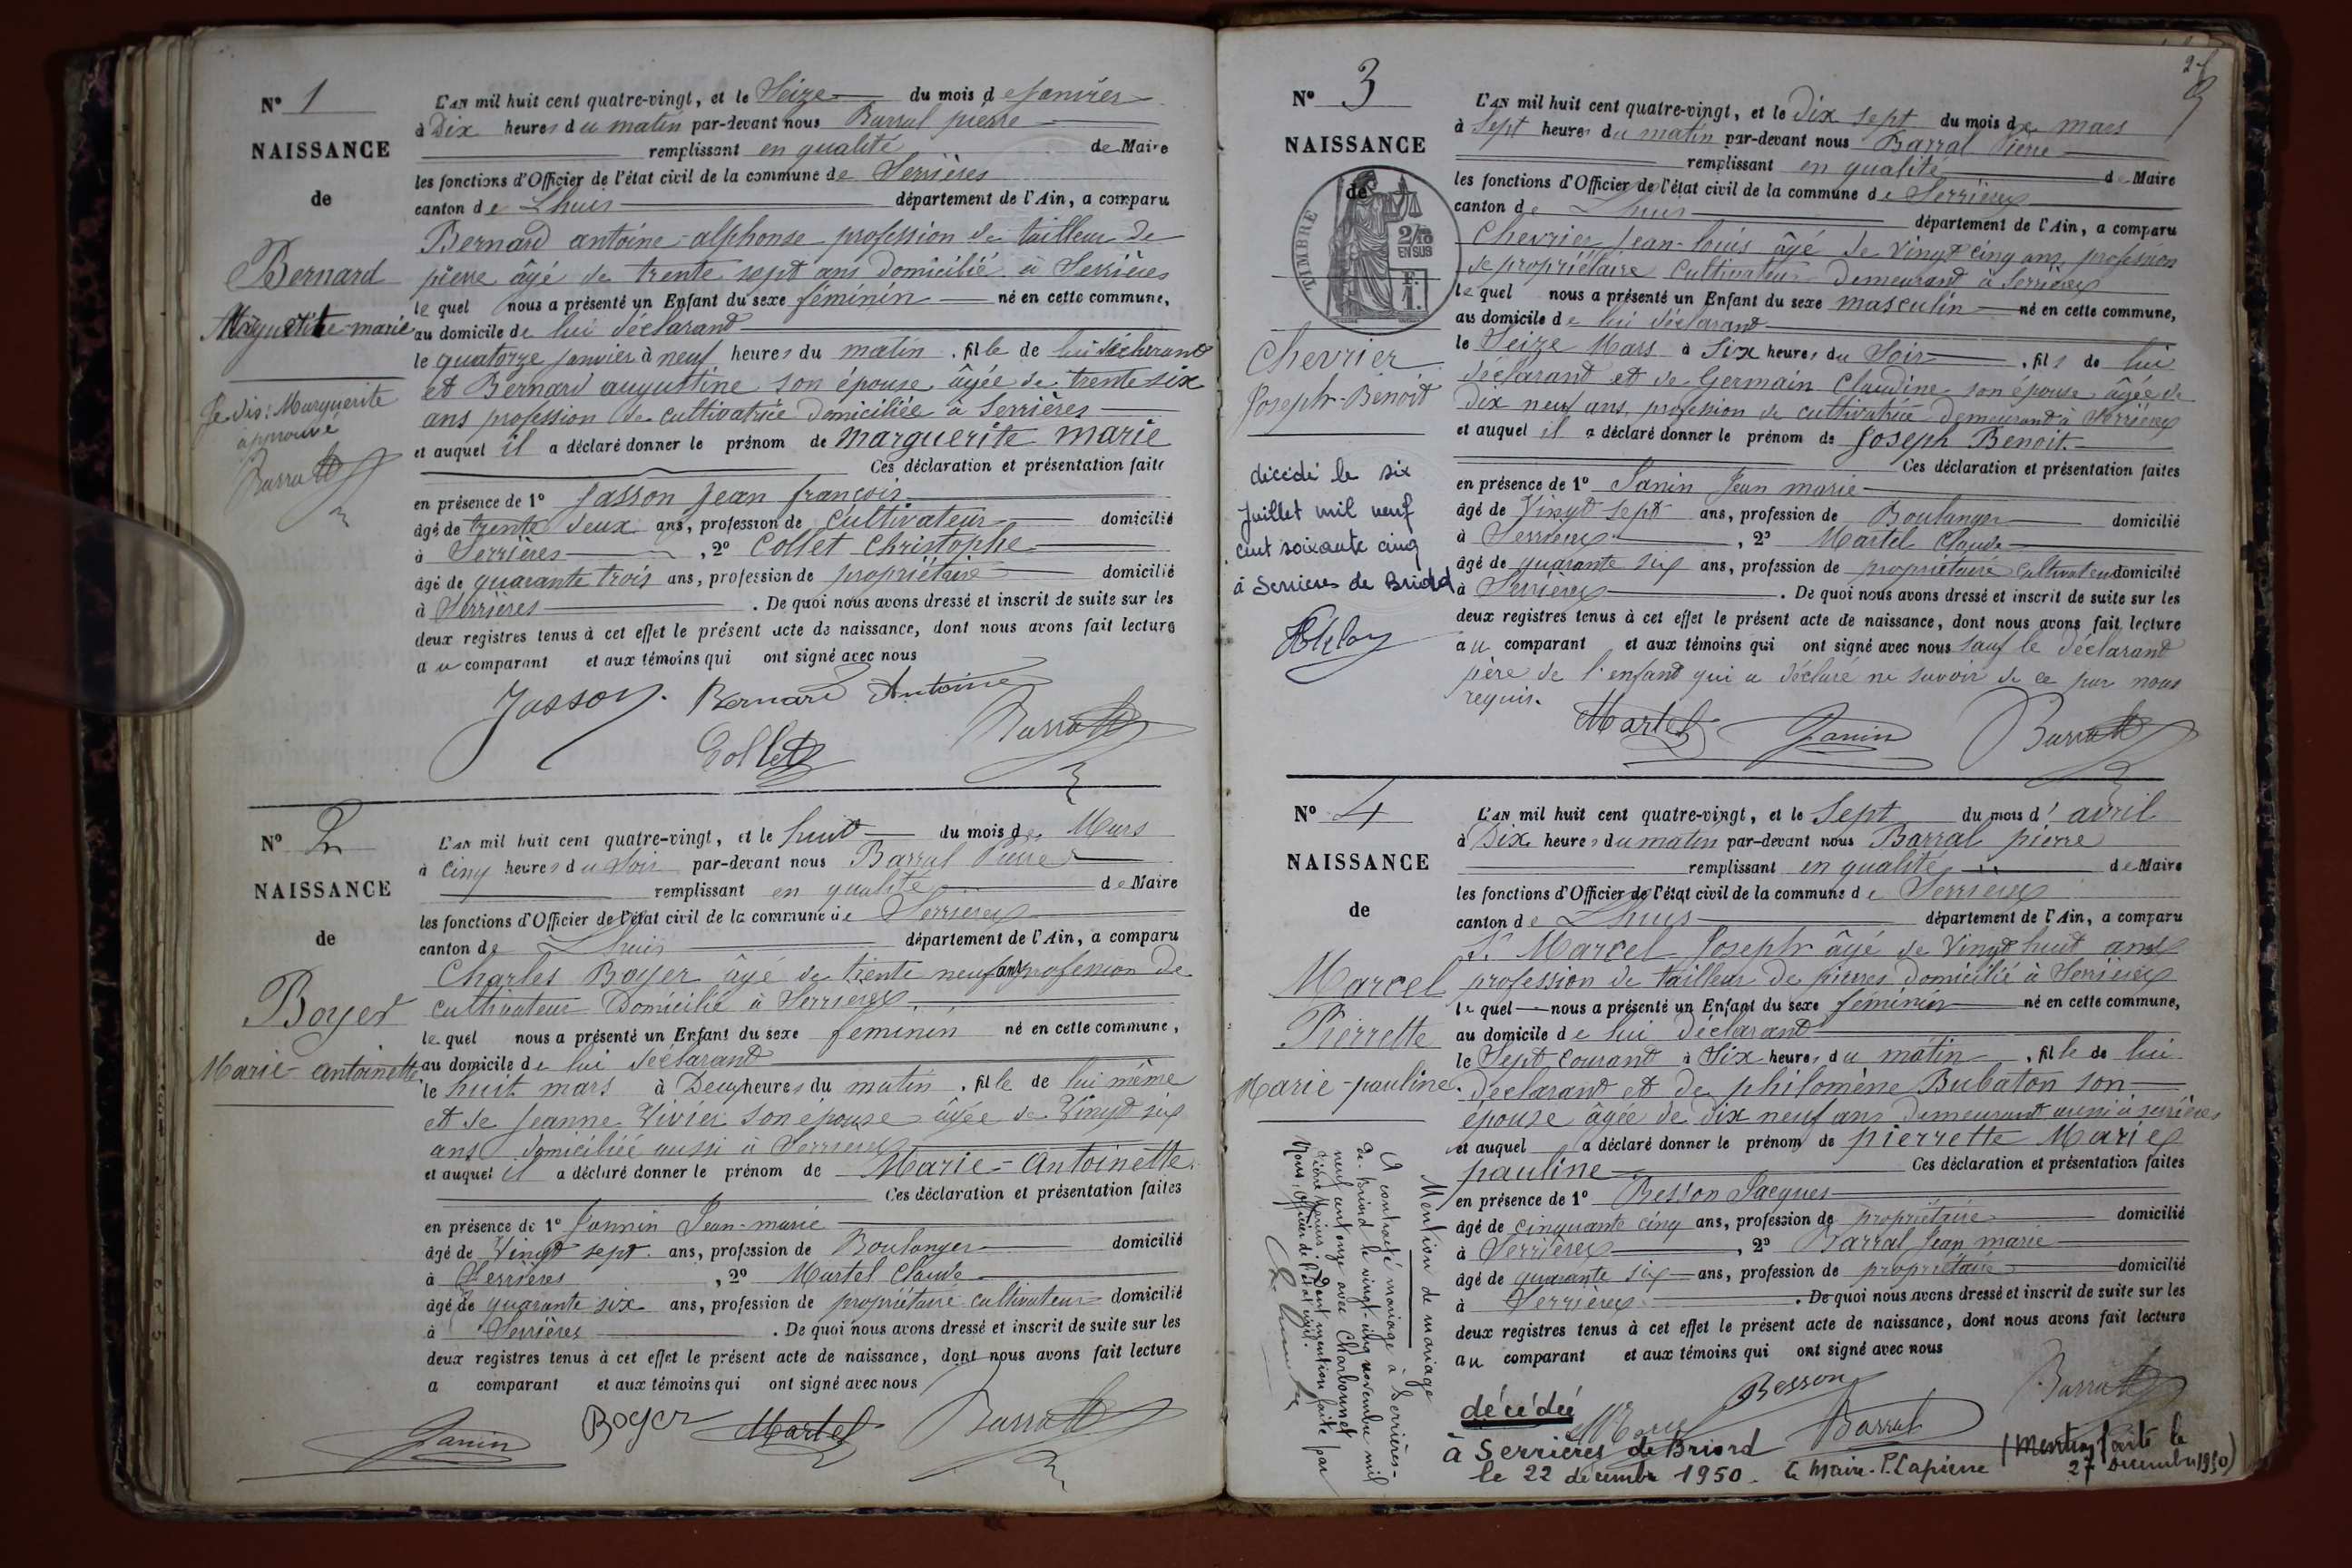 N° 1
NAISSANCE
de
Bernard
Marguerite-marie
Je dis: Marguerite
approuvé
Barral
L'AN mil huit cent quatre-vingt, et le Seize du mois de Janvier
à Dix heures du matin par-devant nous Barral pierre
remplissant en qualité de Maire
les fonctions d'Officier de l'état civil de la commune de Serrières
canton de Lhuis département de l'Ain, a comparu
Bernard antoine-alphonse profession de tailleur de
pierre âgé de trente sept ans domicilié à Serrières
le quel nous a présenté un Enfant du sexe féminin né en cette commune,
au domicile de lui déclarand
le quatorze janvier à neuf heures du matin, fille de lui déclarand
et Bernard augustine son épouse âgée de trente six
ans profession de cultivatrice domiciliée à Serrières
et auquel il a déclaré donner le prénom de marguerite marie
Ces déclaration et présentation faite
en présence de 1° Jasson Jean françois
âgé de trente deux ans, profession de cultivateur domicilié
à Serrières, 2° Collet Christophe
âgé de quarante trois ans, profession de propriétaire domicilié
à Serrières. De quoi nous avons dressé et inscrit de suite sur les
deux registres tenus à cet effet le présent acte de naissance, dont nous avons fait lecture
au comparant et aux témoins qui ont signé avec nous
Jasson. Bernard Antoine
Collet Barral
N° 2
NAISSANCE
de
Boyer
Marie-antoinette
L'AN mil huit cent quatre-vingt, et le huit du mois de Mars
à cinq heures du soir par-devant nous Barral Pierre
remplissant en qualité de Maire
les fonctions d'Officier de l'état civil de la commune de Serrieres
canton de Lhuis département de l'Ain, a comparu
Charles Boyer âgé de trente neuf ans profession de
cultivateur Domicilié à Serrieres
le quel nous a présenté un Enfant du sexe feminin né en cette commune,
au domicile de lui déclarand
le huit mars à Deux heures du matin, fille de lui même
et de Jeanne Vivier son épouse âgée de Vingt six
ans domiciliée aussi à Serrieres
et auquel il a déclaré donner le prénom de Marie-Antoinette.
Ces déclaration et présentation faites
en présence de 1° Jannin Jean-marie
âgé de Vingt sept ans, profession de Boulanger domicilié
à Serrieres, 2° Martel Claude
âgé de quarante six ans, profession de propriétaire cultivateur domicilié
à Serrières. De quoi nous avons dressé et inscrit de suite sur les
deux registres tenus à cet effet le présent acte de naissance, dont nous avons fait lecture
a comparant et aux témoins qui ont signé avec nous
Janin Boyer Martel Barral
N° 3
NAISSANCE
de
TIMBRE
2/10
EN SUS
Chevrier
Joseph-Benoit
décédé le six
Juillet mil neuf
cent soixante cinq
à Serrieres de Briord
L'AN mil huit cent quatre-vingt, et le Dix sept du mois de mars
à Sept heures du matin par-devant nous Barral Pierre
remplissant en qualité de Maire
les fonctions d'Officier de l'état civil de la commune de Serrieres
canton de Lhuis département de l'Ain, a comparu
Chevrier Jean-Louis âgé de Vingt cinq ans profession
de propriétaire Cultivateur Demeurand à Serrières
le quel nous a présenté un Enfant du sexe masculin né en cette commune,
au domicile de lui déclarand
le Seize Mars à Six heures du Soir, fils de lui
déclarand et de Germain Claudine son épouse âgée de
dix neuf ans, profession de cultivatrice demeurand à Serrières
et auquel il a déclaré donner le prénom de Joseph Benoit
Ces déclaration et présentation faites
en présence de 1° Janin Jean marie
âgé de Vingt sept ans, profession de Boulanger domicilié
à Serrieres, 2° Martel Claude
âgé de quarante six ans, profession de propriétaire cultivateur domicilié
à Serrières. De quoi nous avons dressé et inscrit de suite sur les
deux registres tenus à cet effet le présent acte de naissance, dont nous avons fait lecture
au comparant et aux témoins qui ont signé avec nous sauf le déclarand
père de l'enfand qui a déclaré ne savoir de ce par nous
requis.
Martel Janin Barral
N° 4
NAISSANCE
de
Marcel
Pierrette
Marie-pauline.
Mention de mariage
A contracté mariage à Serrières-
de-Briord le vingt-cinq novembre mil
neuf cent onze avec Charbonnet
Dont mention faite par
Nous, officier de l'état civil.
L'AN mil huit cent quatre-vingt, et le Sept du mois d'avril
à Dix heures du matin par-devant nous Barral pierre
remplissant en qualité de Maire
les fonctions d'Officier de l'état civil de la commune de Serrieres
canton de Lhuis département de l'Ain, a comparu
Sr Marcel Joseph âgé de Vingt huit ans
profession de tailleur de pierres domicilié à Serrières
le quel nous a présenté un Enfant du sexe féminin né en cette commune,
au domicile de lui Déclarand
le Sept courand à Six heures du matin, fille de lui
déclarand et de philomène Bubaton son
épouse âgée de dix neuf ans demeurant aussi à serrières
et auquel a déclaré donner le prénom de pierrette Marie
pauline Ces déclaration et présentation faites
en présence de 1° Besson Jacques
âgé de cinquante cinq ans, profession de propriétaire domicilié
à Serrières, 2° Barral Jean marie
âgé de quarante six ans, profession de propriétaire domicilié
à Serrières. De quoi nous avons dressé et inscrit de suite sur les
deux registres tenus à cet effet le présent acte de naissance, dont nous avons fait lecture
au comparant et aux témoins qui ont signé avec nous
Besson Barral
décédée Marcel Barral
à Serrières de Briord
le 22 décembre 1950. Le Maire. P. Lapierre
(Mention faite le
27 Décembre 1950)